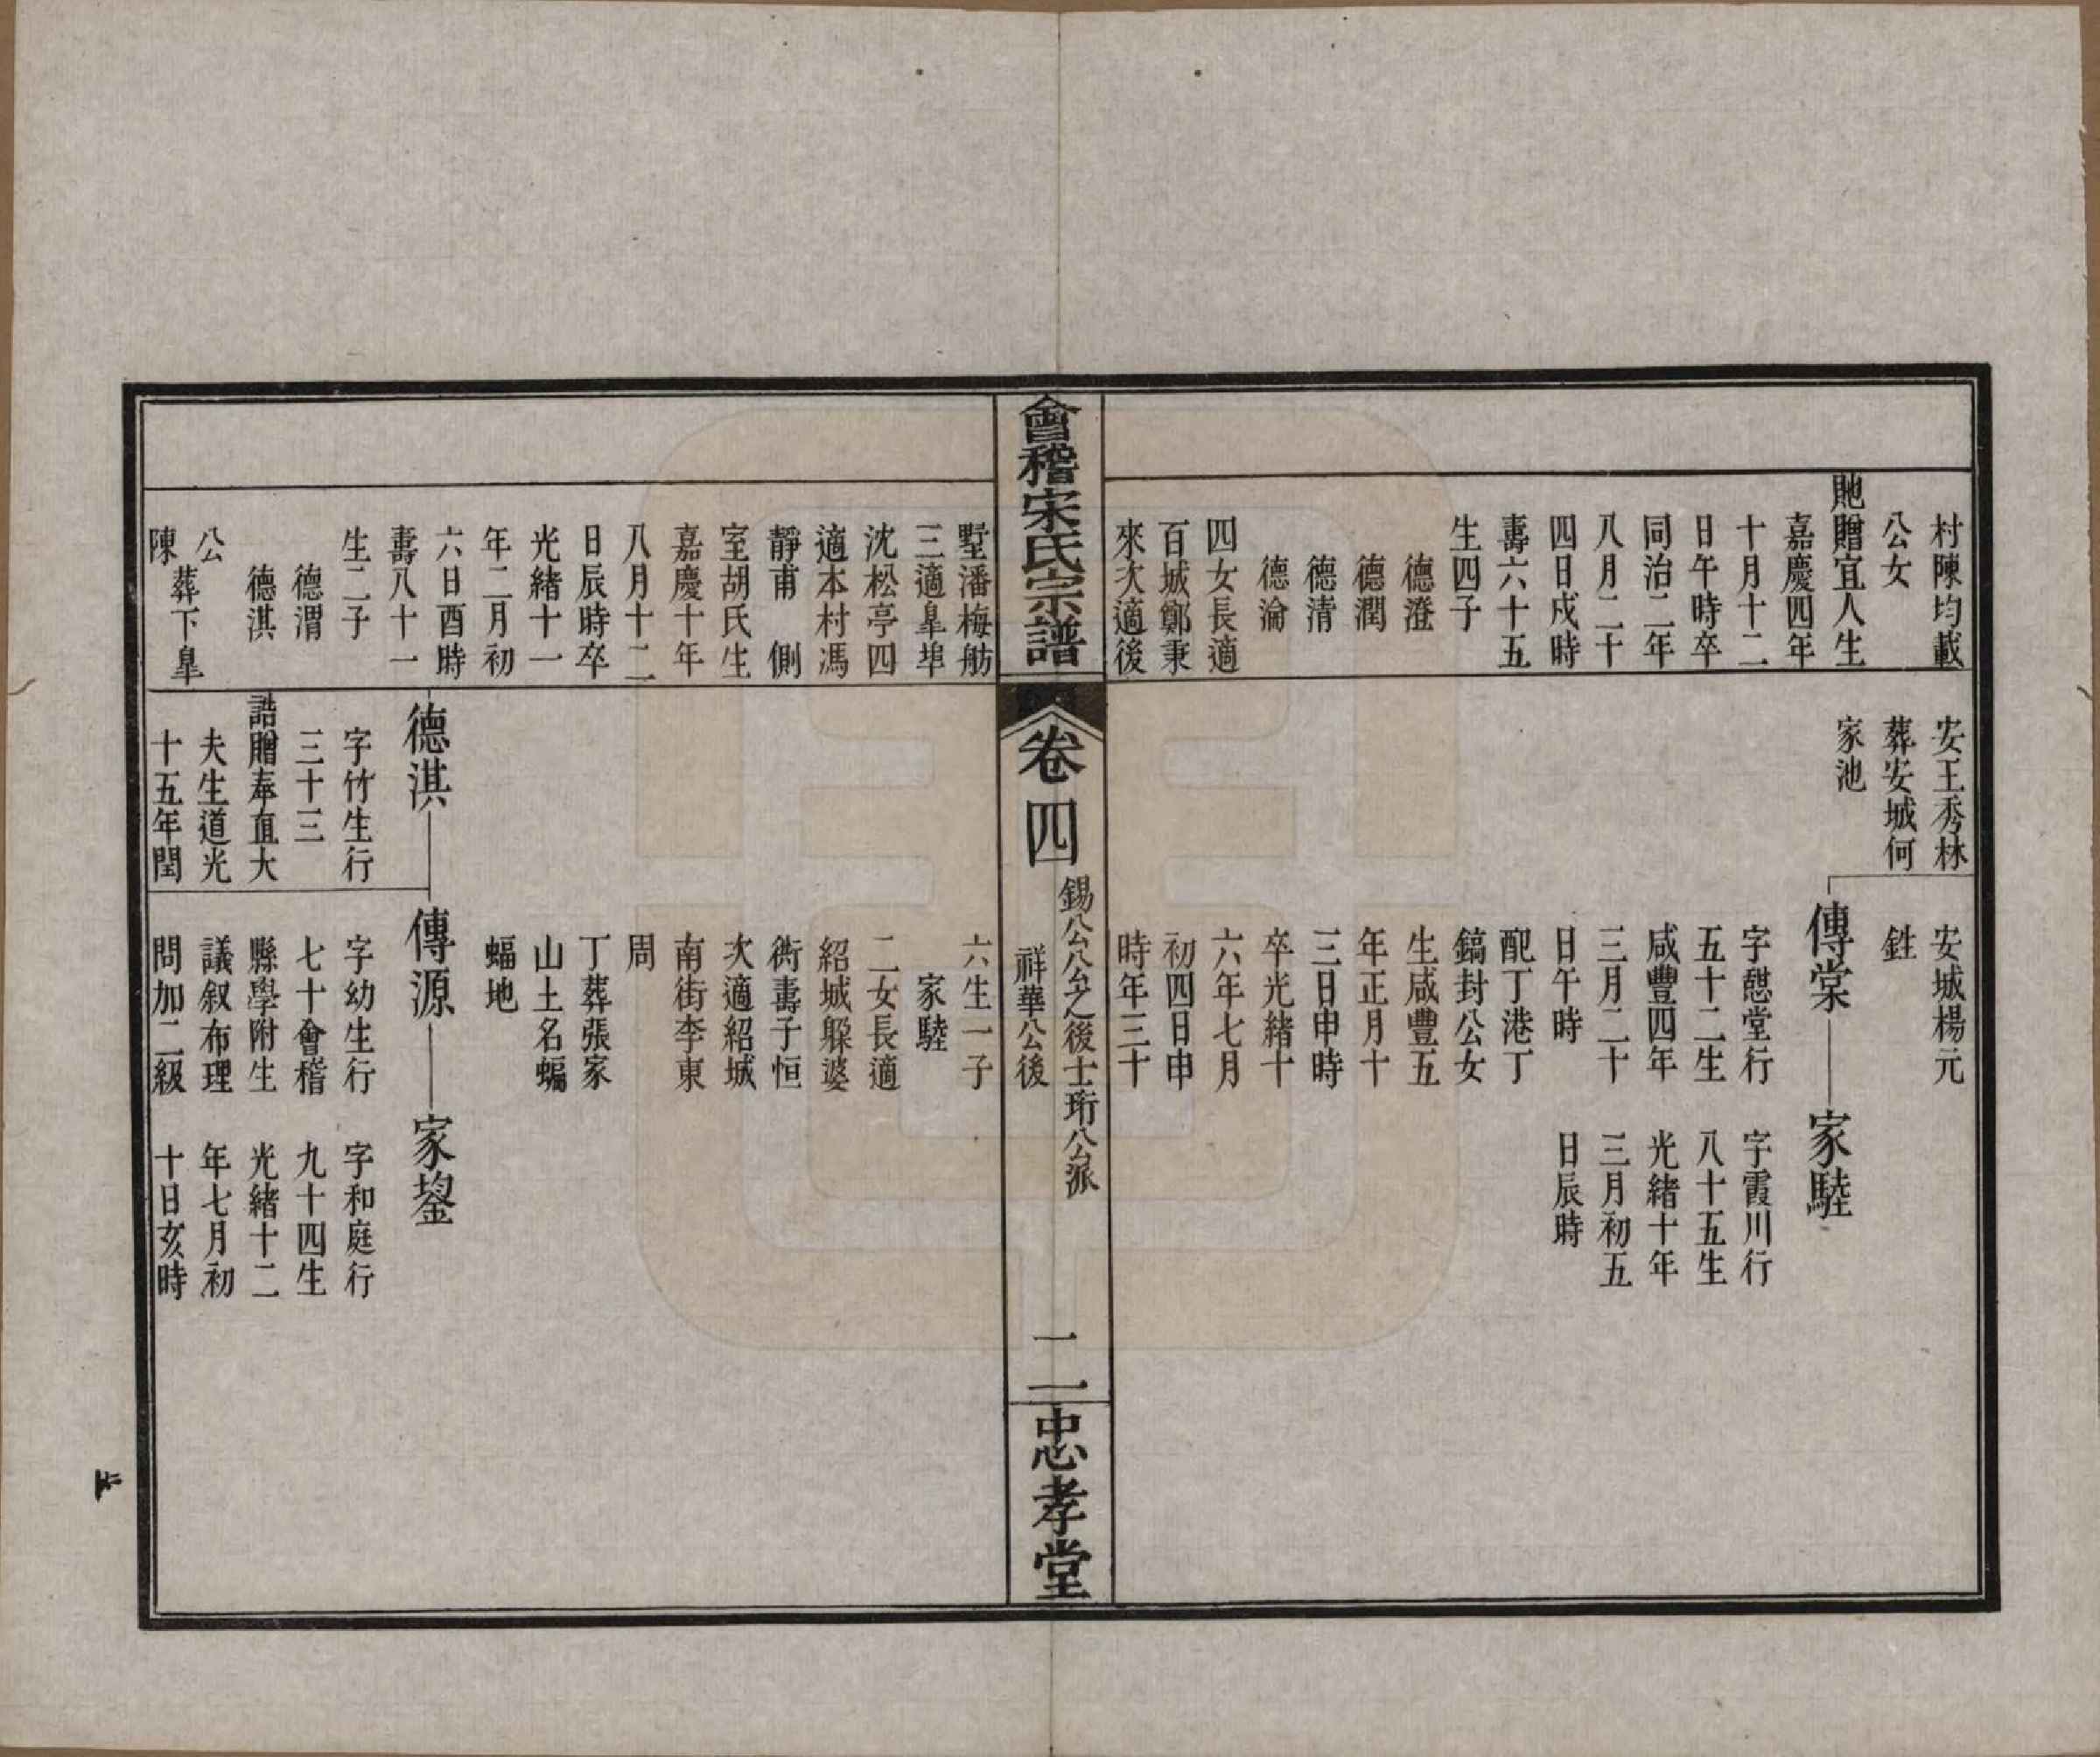 村陳均載
公女
貤贈宜人生
嘉慶四年
十月十二
日午時卒
同治二年
八月二十
四日戌時
壽六十五
生四子
德澄
德潤
德清
德瀹
四女長適
百城鄭秉
來次適後
安王秀林
葬安城何
家池
安城楊元
鉎
傳棠
字憇堂行
五十二生
咸豐四年
三月二十
日午時
配丁港丁
鎬封公女
生咸豐五
年正月十
三日申時
卒光緒十
六年七月
初四日申
時年三十
家騞
字霞川行
八十五生
光緒十年
三月初五
日辰時
會稽宋氏宗譜
卷四
錫公八公之後士珩公派
祥華公後
二
忠孝堂
墅潘梅舫
三適皐埠
沈松亭四
適本村馮
靜甫 側
室胡氏生
嘉慶十年
八月十二
日辰時卒
光緒十一
年二月初
六日酉時
壽八十一
生二子
德渭
德淇
公 葬下皐
陳
六生一子
家騞
二女長適
紹城躲婆
衖壽子恒
次適紹城
南街李東
周
丁葬張家
山土名蝙
蝠地
德淇
字竹生行
三十三
誥贈奉直大
夫生道光
十五年閏
傳源
字幼生行
七十會稽
縣學附生
議叙布理
問加二級
家鋆
字和庭行
九十四生
光緒十二
年七月初
十日亥時